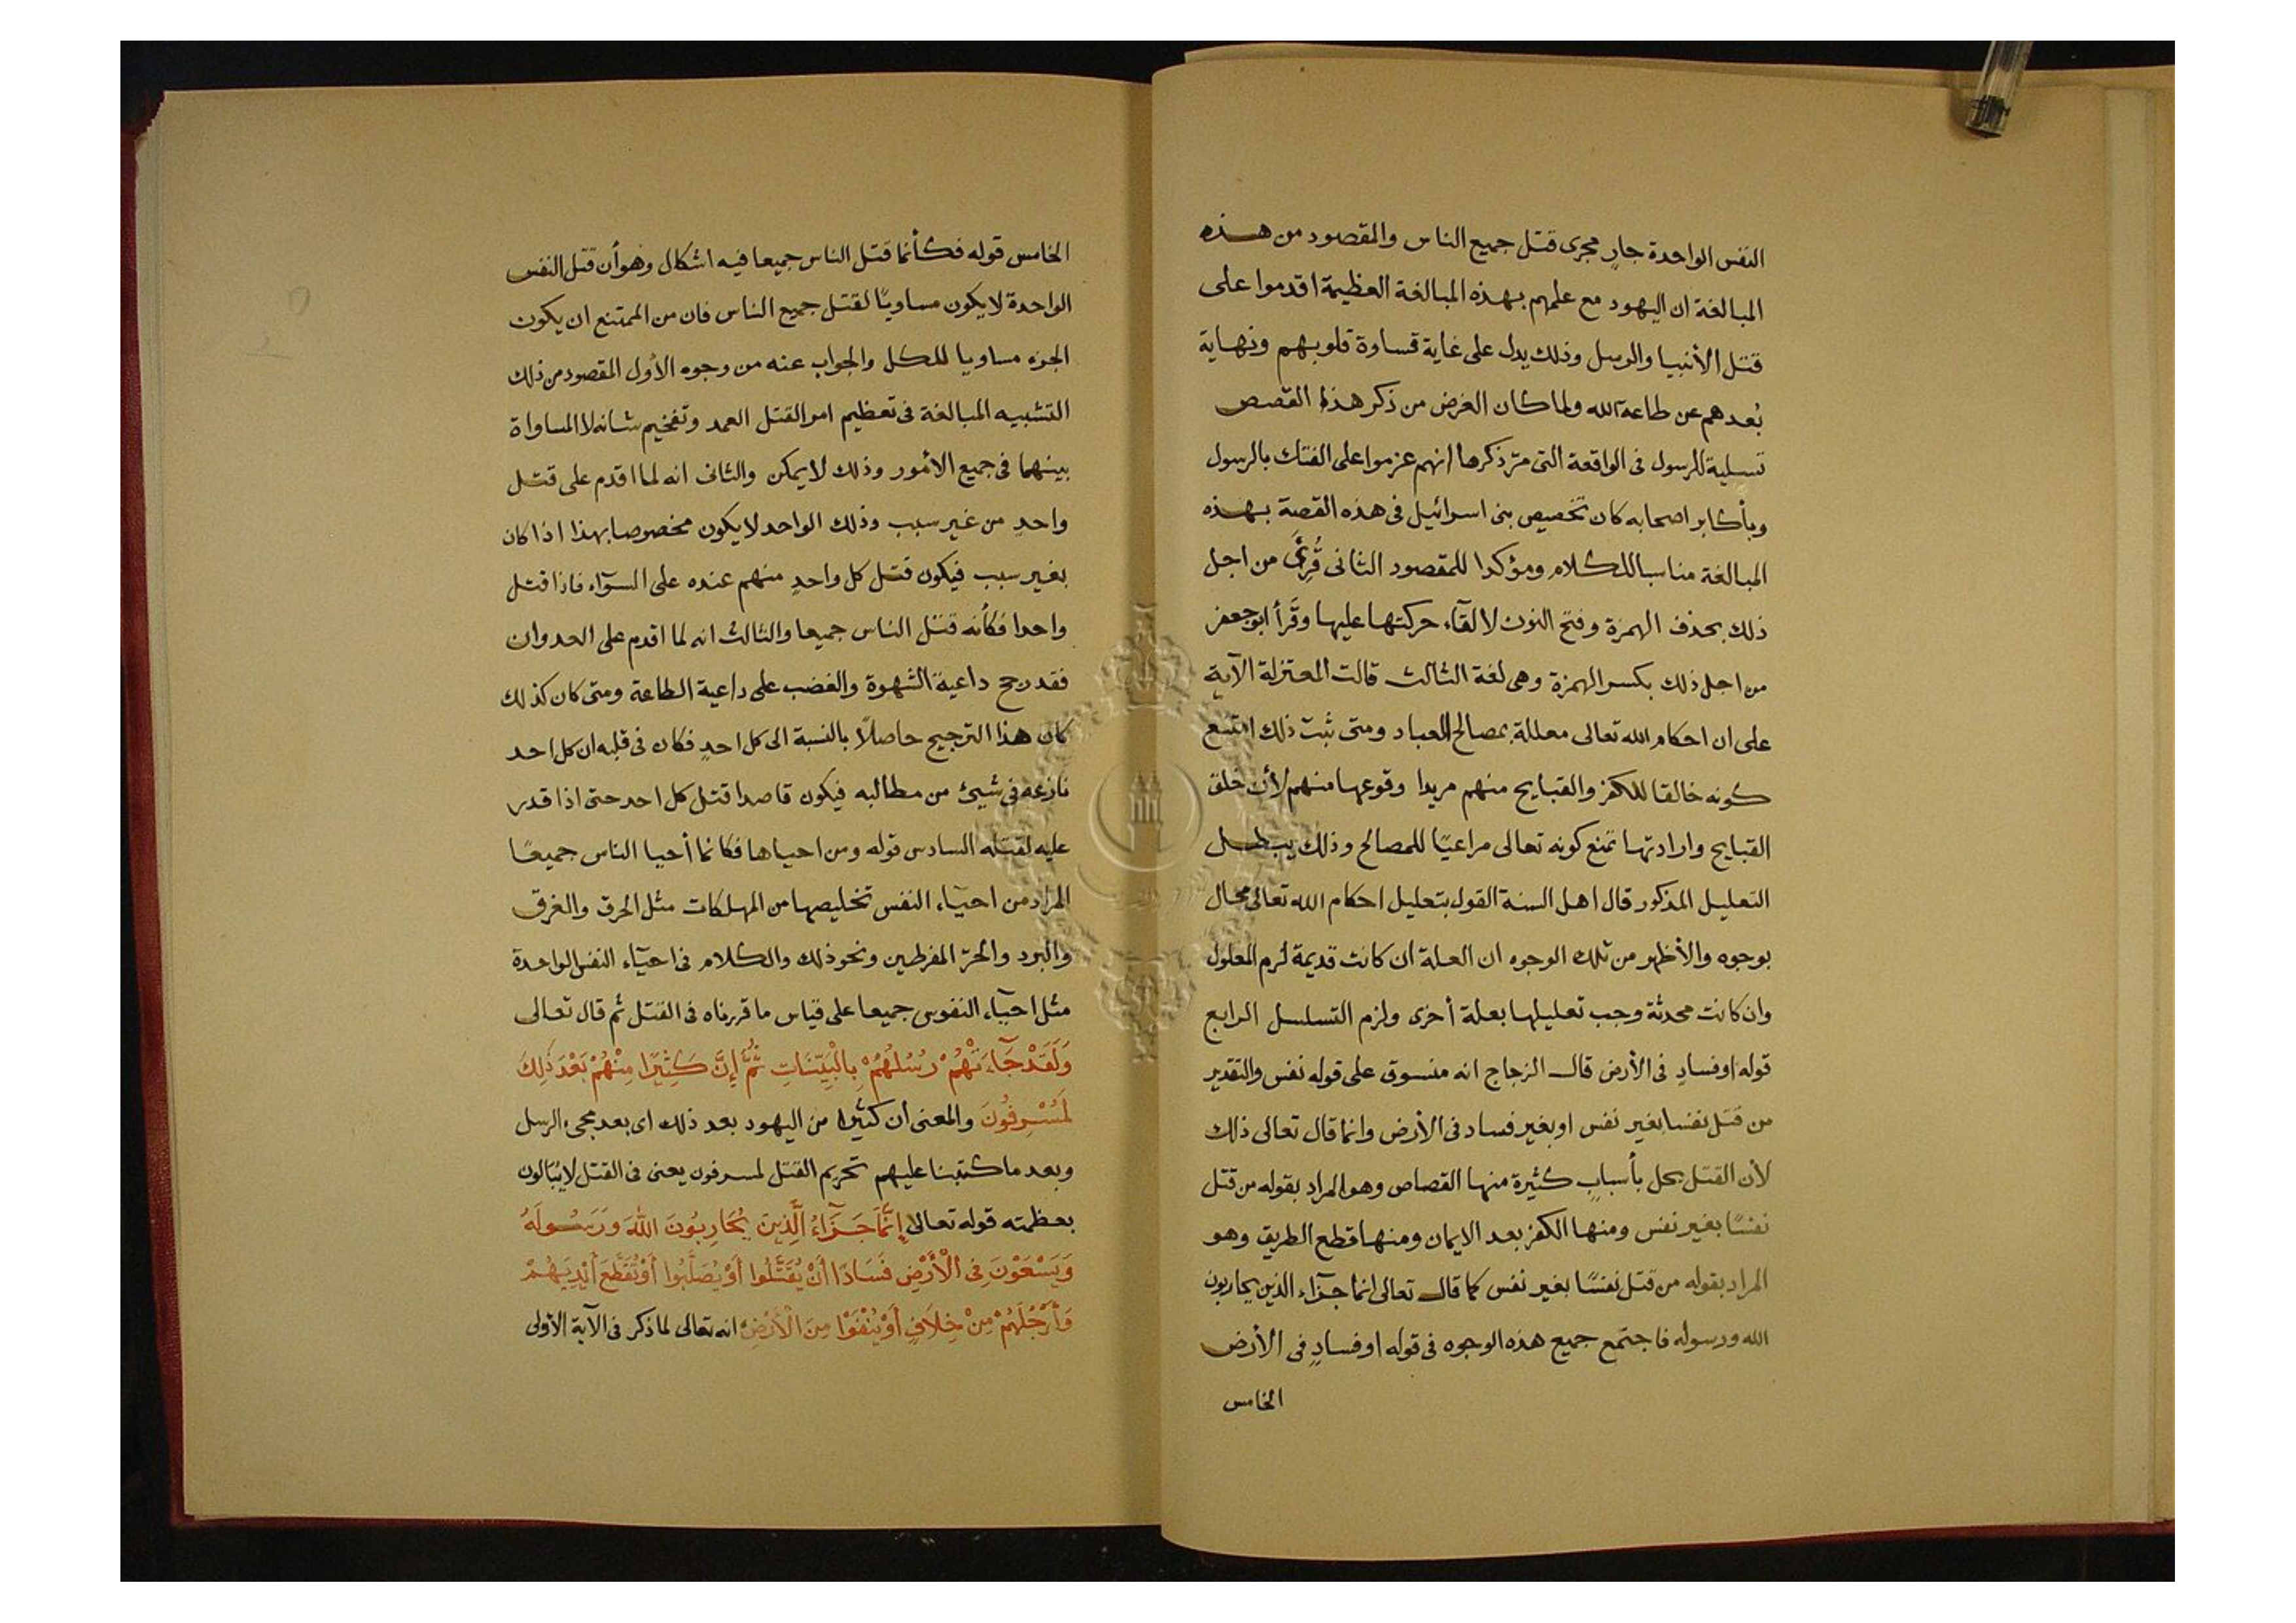 النفس الواحدة جارٍ مجرى قتل جميع الناس والمقصود من هذه
المبالغة ان اليهود مع علمهم بهذه المبالغة العظيمة اقدموا على
قتل الأنبيا والرسل وذلك يدل على غاية قساوة قلوبهم ونهاية
بُعدهم عن طاعة الله ولما كان الغرض من ذكر هذا القصص
تسلية للرسول فى الواقعة التى مرّ ذكرها انهم عزموا على الفتك بالرسول
وبأكابر اصحابه كان تخصيص بنى اسرائيل فى هذه القصة بهذه
المبالغة مناسبا للكلام ومؤكدا للمقصود الثانى قُرِئَ من اجل
ذلك بحذف الهمزة وفتح النون لالقآء حركتها عليها وقَرأ ابو جعفر
من اجل ذلك بكسر الهمزة وهى لغة الثالث قالت المعتزلة الآية
على ان احكام الله تعالى معللة بمصالح العباد ومتى ثبت ذلك امتنع
كونه خالقا للكفر والقبايح منهم مريدا وقوعها منهم لأن خلق
القبايح وارادتها تمنع كونه تعالى مراعيًا للمصالح وذلك يبطل
التعليل المذكور قال اهل السنة القول بتعليل احكام الله تعالى محال
بوجوه والأظهر من تلك الوجوه ان العلة ان كانت قديمة لزم المعلول
وان كانت محدثة وجب تعليلها بعلة أخرى ولزم التسلسل الرابع
قوله او فسادٍ فى الأرض قال الزجاج انه منسوق على قوله نفس والتقدير
من قتل نفسا بغير نفس او بغير فساد فى الأرض وانما قال تعالى ذلك
لأن القتل يحل بأسبابٍ كثيرة منها القصاص وهو المراد بقوله من قتل
نفسًا بغير نفس ومنها الكفر بعد الايمان ومنها قطع الطريق وهو
المراد بقوله من قتل نفسًا بغير نفس كما قال تعالى انما جزآء الذين يحاربون
الله ورسوله فاجتمع جميع هذه الوجوه فى قوله او فسادٍ فى الأرض
الخامس
الخامس قوله فكأنما قتل الناس جميعا فيه اشكال وهو أن قتل النفس
الواحدة لا يكون مساويًا لقتل جميع الناس فان من الممتنع ان يكون
الجزء مساويا للكل والجواب عنه من وجوه الأول المقصود من ذلك
التشبيه المبالغة فى تعظيم امر القتل العمد وتفخيم شانه لا المساواة
بينهما فى جميع الأمور وذلك لا يمكن والثانى انه لما اقدم على قتل
واحدٍ من غير سبب وذلك الواحد لا يكون مخصوصا بهذا اذا كان
بغير سبب فيكون قتل كل واحدٍ منهم عنده على السوآء فاذا قتل
واحدا فكأنه قتل الناس جميعا والثالث انه لما اقدم على العدوان
فقد رجح داعية الشهوة والغضب على داعية الطاعة ومتى كان كذلك
كان هذا الترجيح حاصلاً بالنسبة الى كل احدٍ فكان فى قلبه ان كل احد
نازعه فى شيئ من مطالبه فيكون قاصدا قتل كل احد حتى اذا قدر
عليه لقتله السادس قوله ومن احياها فكانما أحيا الناس جميعًا
المراد من احيآء النفس تخليصها من المهلكات مثل الحرق والغرق
والبرد والحرّ المفرطين ونحو ذلك والكلام فى احيآء النفس الواحدة
مثل احيآء النفوس جميعا على قياس ما قررناه فى القتل ثم قال تعالى
وَلَقَدْ جَآءَتْهُمْ رُسُلُهُمْ بِالْبَيِّنَاتِ ثُمَّ إِنَّ كَثِيرًا مِنْهُمْ بَعْدَ ذَلِكَ
لَمُسْرِفُونَ والمعنى أن كثيرا من اليهود بعد ذلك اى بعد مجىء الرسل
وبعد ما كتبنا عليهم تحريم القتل لمسرفون يعنى فى القتل لا يُبَالون
بعظمته قوله تعالى إِنَّمَا جَزَآءُ الَّذِينَ يُحَارِبُونَ اللهَ وَرَسُولَهُ
وَيَسْعَوْنَ فِى الْأَرْضِ فَسَادًا أَنْ يُقَتَّلُوا أَوْ يُصَلَّبُوا أَوْ تُقَطَّعَ أَيْدِيَهُمْ
وَأَرْجُلَهُمْ مِنْ خِلَافٍ أَوْ يُنْفَوْا مِنَ الْأَرْضِ انه تعالى لما ذكر فى الآية الأولى